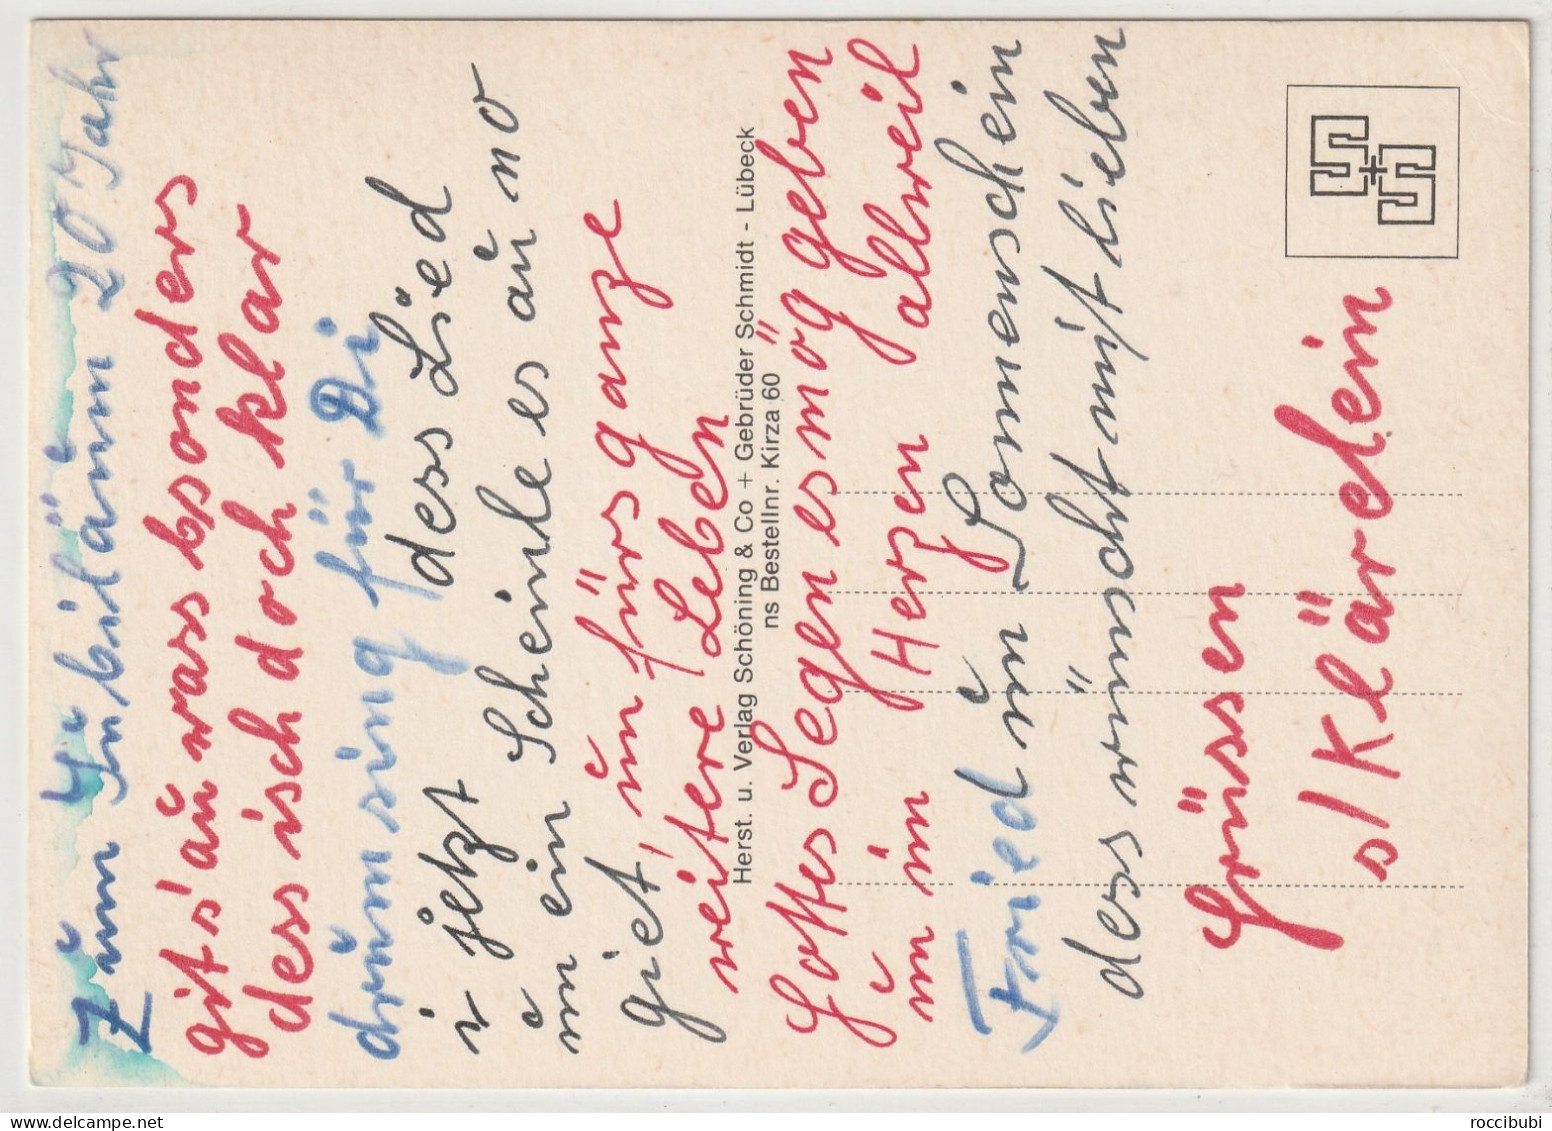 Zum Jubiläum 20 Jahr
git s' au was bsonders
dess isch doch klar
drum sing für Di
i jetzt dess Lied
un ein Scheinle es au no
giet, un fürs ganze
weitere Leben
Gottes Segen es mög geben
un im Herzen allweil
Fried un Sonnenschein
dess wünscht mit lieben
Grüssen
s' Klärelein
Herst. u. Verlag Schöning & Co + Gebrüder Schmidt - Lübeck
ns Bestellnr. Kirza 60
roccibubi